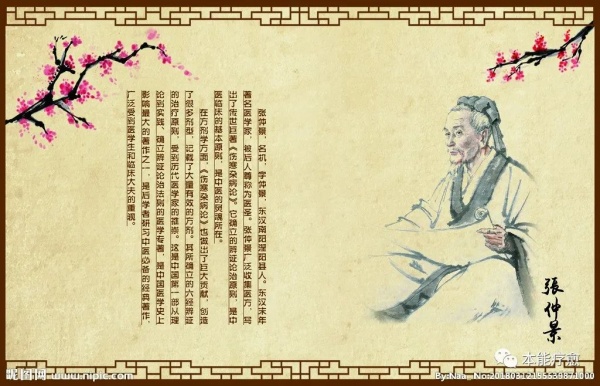 张仲景，名机，字仲景，东汉南阳涅阳县人。东汉末年
著名医学家，被后人尊称为医圣。张仲景广泛收集医方，写
出了传世巨著《伤寒杂病论》。它确立的辨证论治原则，是中
医临床的基本原则，是中医的灵魂所在。
在方剂学方面，《伤寒杂病论》也做出了巨大贡献，创造
了很多剂型，记载了大量有效的方剂。其所确立的六经辨证
的治疗原则，受到历代医学家的推崇。这是中国第一部从理
论到实践、确立辨证论治法则的医学专著，是中国医学史上
影响最大的著作之一，是后学者研习中医必备的经典著作，
广泛受到医学生和临床大夫的重视。
張仲景
本能序愈
昵图网 www.nipic.com